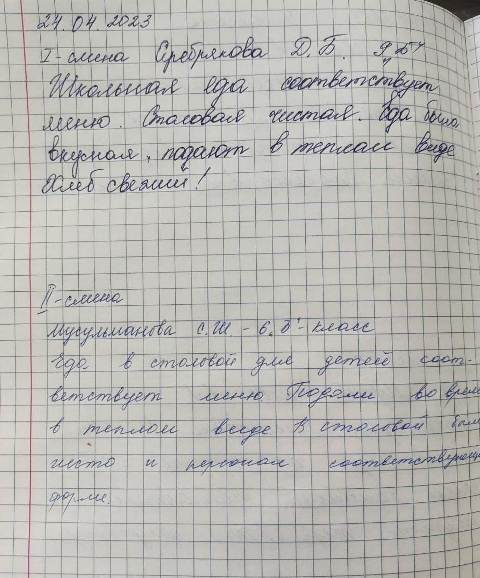 24.04.2023
I-смена Серебрякова Д.Б. 9"Б"
Школьная еда соответствует
меню. Сталовая чистая. Еда была
вкусная, подают в теплам виде
Хлеб свежий!
II-смена
Мусульманова С.Ш. - 6 "Б"-класс
Еда в столовой для детей соот-
ветствует меню Подали во время
в теплом виде В столовой было
чисто и персонал соответствующе
форме.